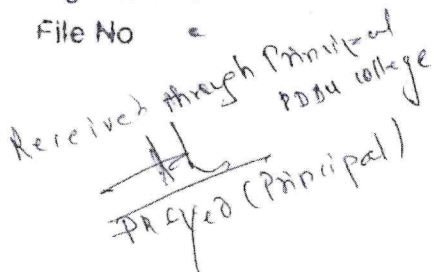 File No
Received through Principal
PDDU College
(Principal)